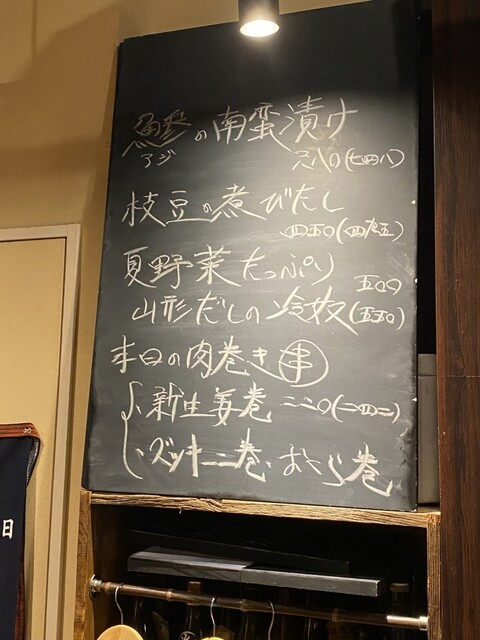 鯵の南蛮漬け
アジ
六八〇(七四八)
枝豆の煮びたし
四五〇(四九五)
夏野菜たっぷり
五〇〇
山形だしの冷奴(五五〇)
本日の肉巻き串
・新生姜巻 二二〇(二四二)
・ズッキーニ巻・おくら巻
日